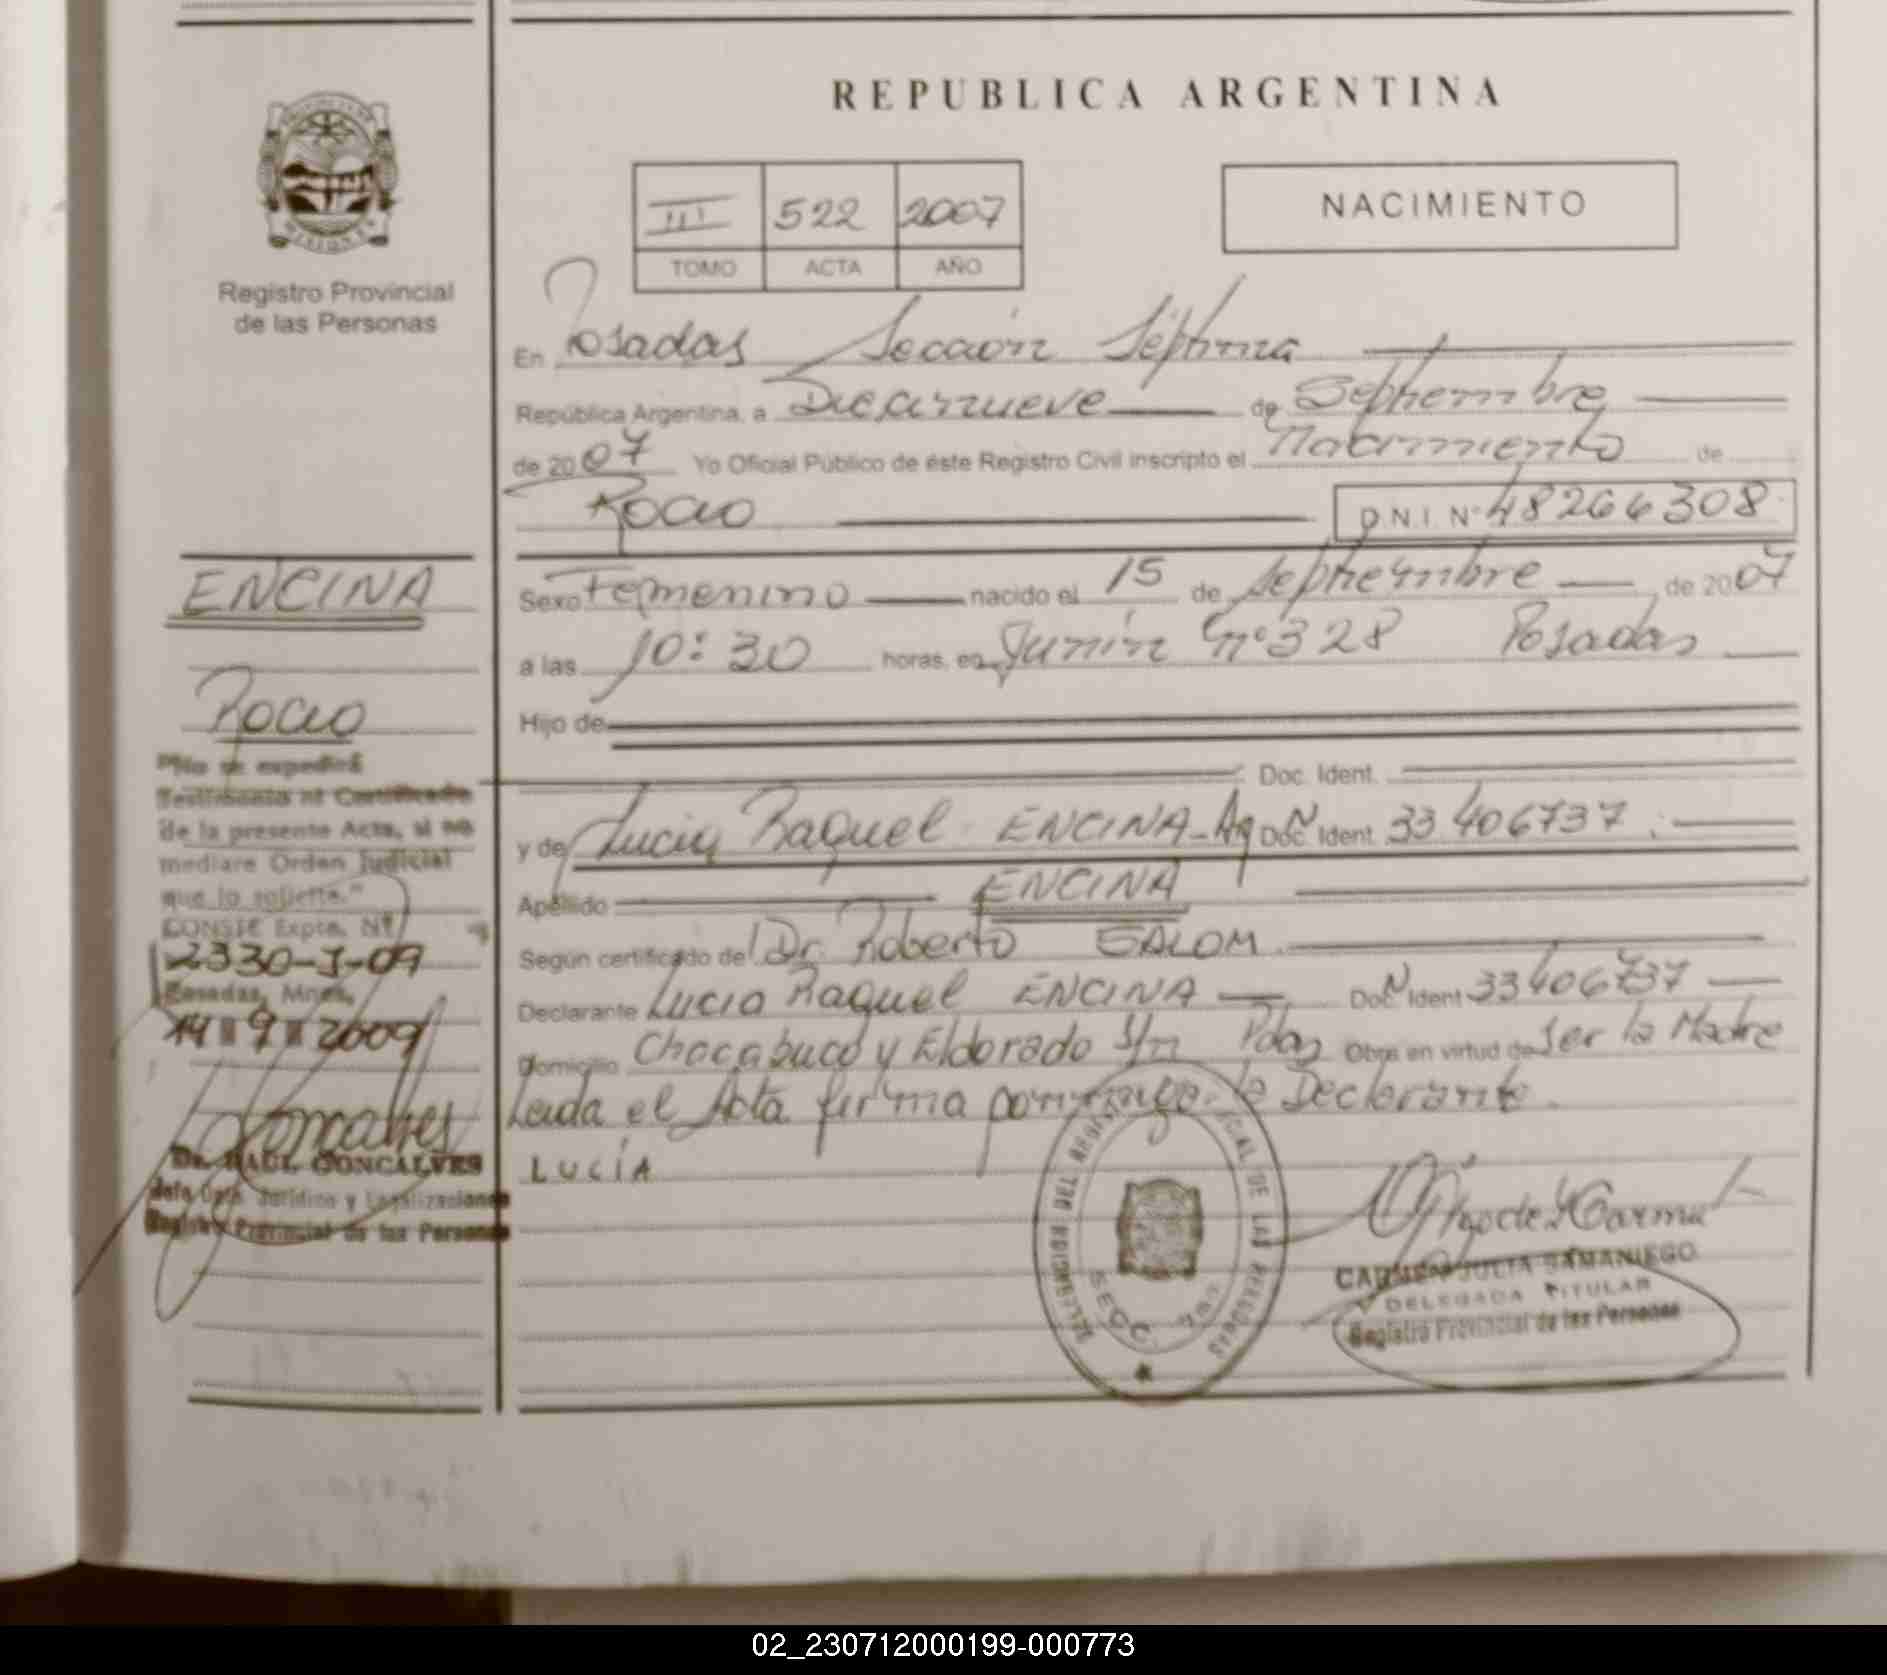 REPUBLICA ARGENTINA
MISIONES
Registro Provincial
de las Personas
III 522 2007
TOMO ACTA AÑO
NACIMIENTO
En Posadas Sección Séptima
República Argentina, a Diecinueve de Septiembre
de 2007 Yo Oficial Público de éste Registro Civil inscripto el Nacimiento de
Rocio D.N.I. Nº 48266308
Sexo Femenino nacido el 15 de Septiembre de 2007
a las 10:30 horas, en Junín nº 328 Posadas
Hijo de
Doc. Ident.
y de Lucia Raquel ENCINA - Ag Doc. Ident. N 33406737
Apellido ENCINA
Según certificado del Dr. Roberto SALOM
Declarante Lucia Raquel ENCINA Doc. Ident N 33406737
Domicilio Chacabuco y Eldorado S/n Pdas Obra en virtud de Ser la Madre
Leida el Acta firma conmigo la Declarante.
LUCÍA
ENCINA
Rocio
"No se expedirá
Testimonio ni Certificado
de la presente Acta, si no
mediare Orden Judicial
que lo solicite."
CONSTE Expte. Nº
2330-I-09
Posadas, Mnes,
14 9 2009
Dr. RAUL GONCALVES
Jefe Dpto. Jurídico y Legalizaciones
Registro Provincial de las Personas
DELEGACION DEL REGISTRO PROVINCIAL DE LAS PERSONAS
SECC. 7ma.
CARMEN JULIA SAMANIEGO
DELEGADA TITULAR
Registro Provincial de las Personas
02_230712000199-000773